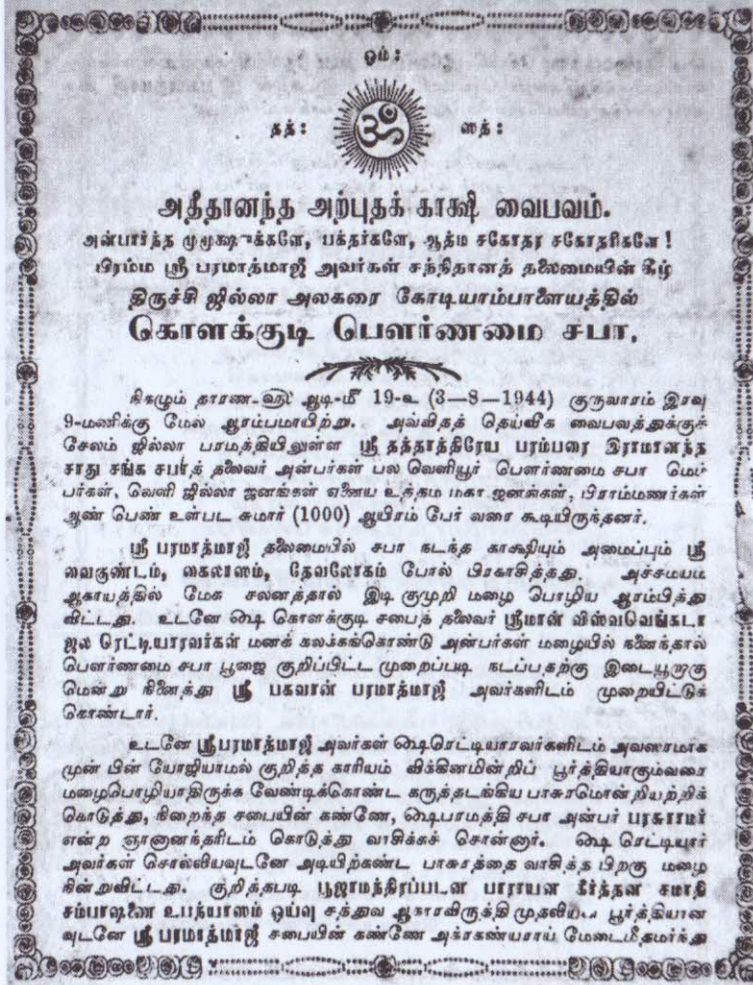 ஓம்:
தத்: ஓம் ஸத்:
அதீதானந்த அற்புதக் காக்ஷி வைபவம்.
அன்பார்ந்த முமூக்ஷுக்களே, பக்தர்களே, ஆத்ம சகோதர சகோதரிகளே!
பிரம்ம ஸ்ரீ பரமாத்மாஜீ அவர்கள் சந்நிதானத் தலைமையின் கீழ்
திருச்சி ஜில்லா அலகரை கோடியாம்பாளையத்தில்
கொளக்குடி பௌர்ணமை சபா.
நிகழும் தாரண-௵ ஆடி-௴ 19-௳ (3-8-1944) குருவாரம் இரவு
9-மணிக்கு மேல் ஆரம்பமாயிற்று. அவ்விதத் தெய்வீக வைபவத்துக்குச்
சேலம் ஜில்லா பரமத்தியிலுள்ள ஸ்ரீ தத்தாத்திரேய பரம்பரை இராமானந்த
சாது சங்க சபாத் தலைவர் அன்பர்கள் பல வெளியூர் பௌர்ணமை சபா மெம்
பர்கள், வெளி ஜில்லா ஜனங்கள் ஏனைய உத்தம மகா ஜனங்கள், பிராம்மணர்கள்
ஆண் பெண் உள்பட சுமார் (1000) ஆயிரம் பேர் வரை கூடியிருந்தனர்.
ஸ்ரீ பரமாத்மாஜீ தலைமையில் சபா நடந்த காக்ஷியும் அமைப்பும் ஸ்ரீ
வைகுண்டம், கைலாஸம், தேவலோகம் போல் பிரகாசித்தது. அச்சமயம்
ஆகாயத்தில் மேக சலனத்தால் இடி குமுறி மழை பொழிய ஆரம்பித்து
விட்டது. உடனே ௸ கொளக்குடி சபைத் தலைவர் ஸ்ரீமான் விஸ்வவெங்கடா
ஜல ரெட்டியாரவர்கள் மனக் கலக்கங்கொண்டு அன்பர்கள் மழையில் நனைந்தால்
பௌர்ணமை சபா பூஜை குறிப்பிட்ட முறைப்படி நடப்பதற்கு இடையூறாகு
மென்று நினைத்து ஸ்ரீ பகவான் பரமாத்மாஜீ அவர்களிடம் முறையிட்டுக்
கொண்டார்.
உடனே ஸ்ரீபரமாத்மாஜீ அவர்கள் ௸ரெட்டியாரவர்களிடம் அவஸரமாக
முன் பின் யோஜியாமல் குறித்த காரியம் விக்கினமின்றிப் பூர்த்தியாகும்வரை
மழைபொழியாதிருக்க வேண்டிக்கொண்ட கருத்தடங்கிய பாசுரமொன்றியற்றிக்
கொடுத்து, நிறைந்த சபையின் கண்ணே, ௸பரமத்தி சபா அன்பர் பரசுராமர்
என்ற ஞானானந்தரிடம் கொடுத்து வாசிக்கச் சொன்னார். ௸ ரெட்டியார்
அவர்கள் சொல்லியவுடனே அடியிற்கண்ட பாசுரத்தை வாசித்த பிறகு மழை
நின்றுவிட்டது. குறித்தபடி பூஜாமந்திரப்படன பாராயன கீர்த்தன சமாதி
சம்பாஷணை உபந்யாஸம் ஓய்வு சத்துவ ஆகாரவிருக்தி முதலிய பூர்த்தியான
வுடனே ஸ்ரீ பரமாத்மாஜீ சபையின் கண்ணே அக்ரகண்யராய் மேடைமீதமர்ந்து